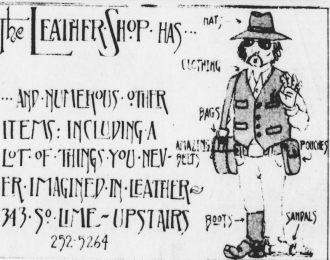 the LEATHER·SHOP HAS...
HATS
CLOTHING
...AND·NUMEROUS·OTHER
ITEMS: INCLUDING·A
LOT·OF·THINGS·YOU·NEV-
ER·IMAGINED·IN·LEATHER
343·SO·LIME~UPSTAIRS
252-5264
BAGS
AMAZING
BELTS
POUCHES
BOOTS
SANDALS